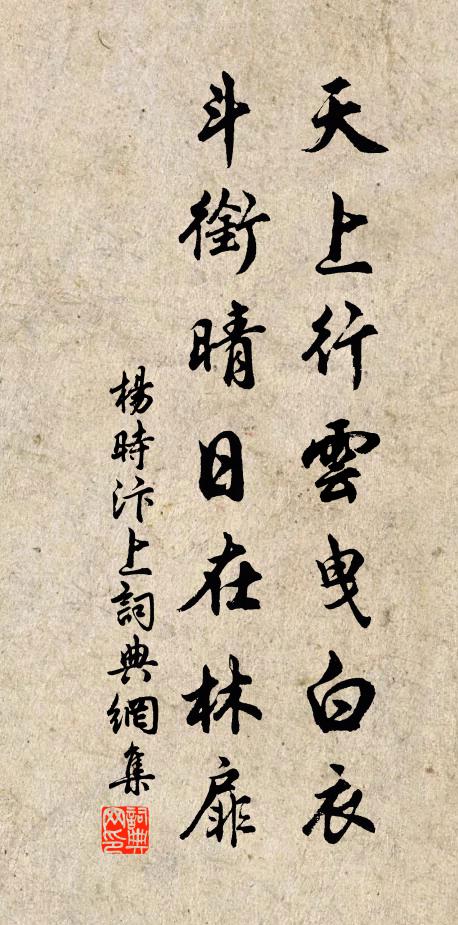 天上行雲曳白衣
斗銜晴日在林扉
楊時汴上詞典網集
詞典網印